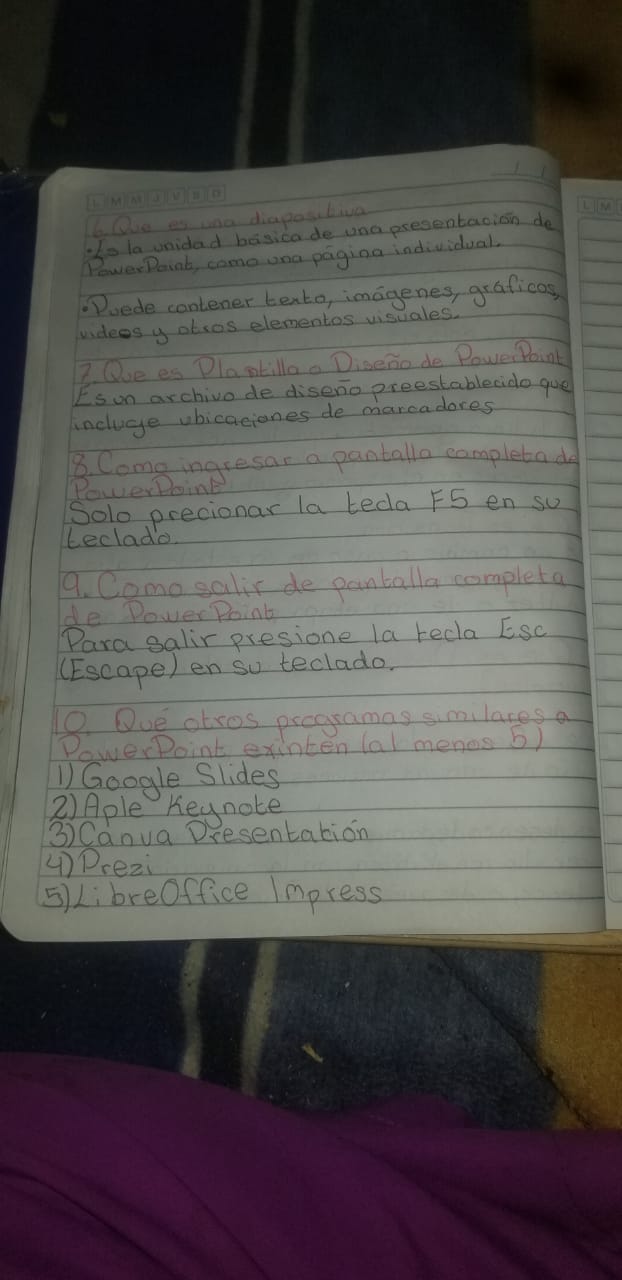 L M M J V S D
6. Que es una diapositiva
• Es la unidad básica de una presentación de
PowerPoint, como una página individual.
• Puede contener texto, imágenes, gráficos,
videos y otros elementos visuales.
7. Que es Plantilla o Diseño de PowerPoint
Es un archivo de diseño preestablecido que
incluye ubicaciones de marcadores
8. Como ingresar a pantalla completa de
PowerPoint
Solo precionar la tecla F5 en su
teclado.
9. Como salir de pantalla completa
de PowerPoint
Para salir presione la tecla Esc
(Escape) en su teclado.
10. Qué otros programas similares a
PowerPoint exinten (al menos 5)
1) Google Slides
2) Aple Keynote
3) Canva Presentatión
4) Prezi
5) LibreOffice Impress
L M